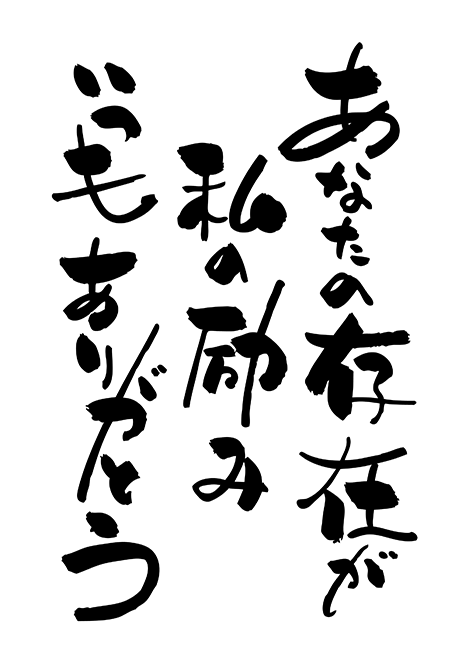 あなたの存在が
私の励み
いつもありがとう